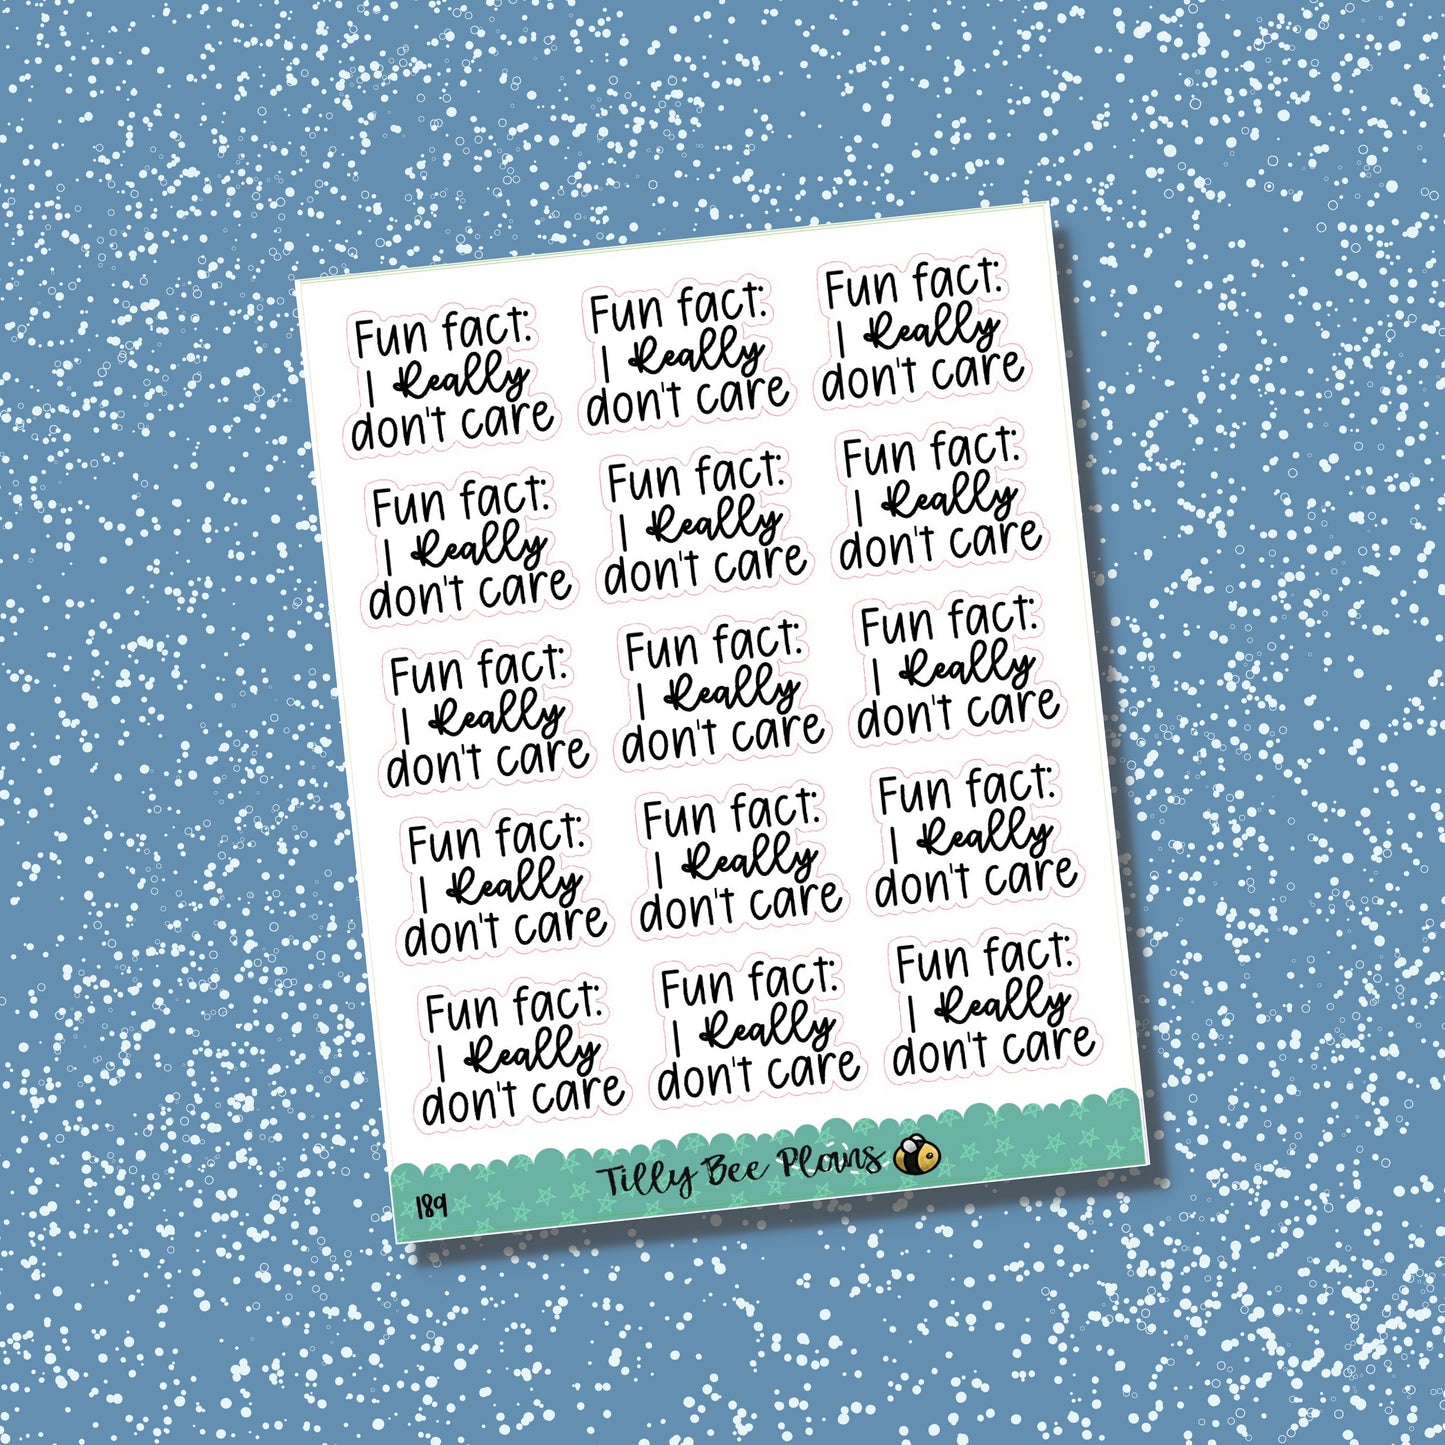 Fun fact:
I Really
don't care
Fun fact:
I Really
don't care
Fun fact:
I Really
don't care
Fun fact:
I Really
don't care
Fun fact:
I Really
don't care
Fun fact:
I Really
don't care
Fun fact:
I Really
don't care
Fun fact:
I Really
don't care
Fun fact:
I Really
don't care
Fun fact:
I Really
don't care
Fun fact:
I Really
don't care
Fun fact:
I Really
don't care
Fun fact:
I Really
don't care
Fun fact:
I Really
don't care
Fun fact:
I Really
don't care
189
Tilly Bee Plans